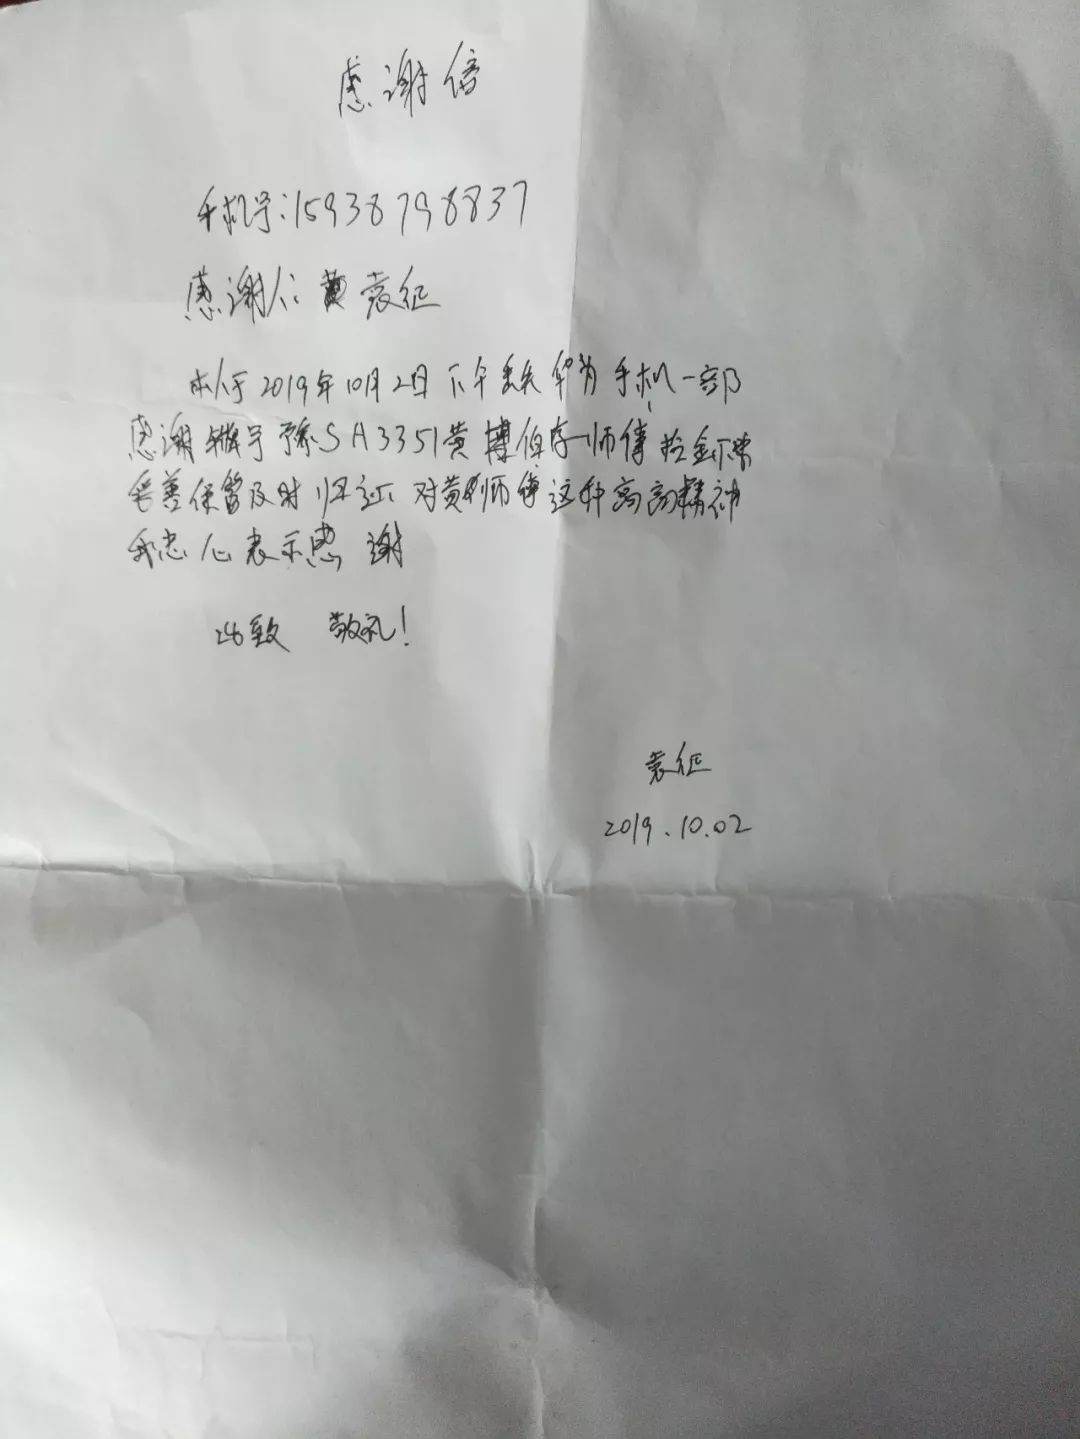 感谢信
手机号:15938798837
感谢人: 袁征
本人于2019年10月2日下午丢失华为手机一部
感谢 豫SA3351黄 师傅拾金不昧
妥善保管及时归还 对黄师傅这种高尚精神
我忠心表示感谢
此致 敬礼!
袁征
2019.10.02